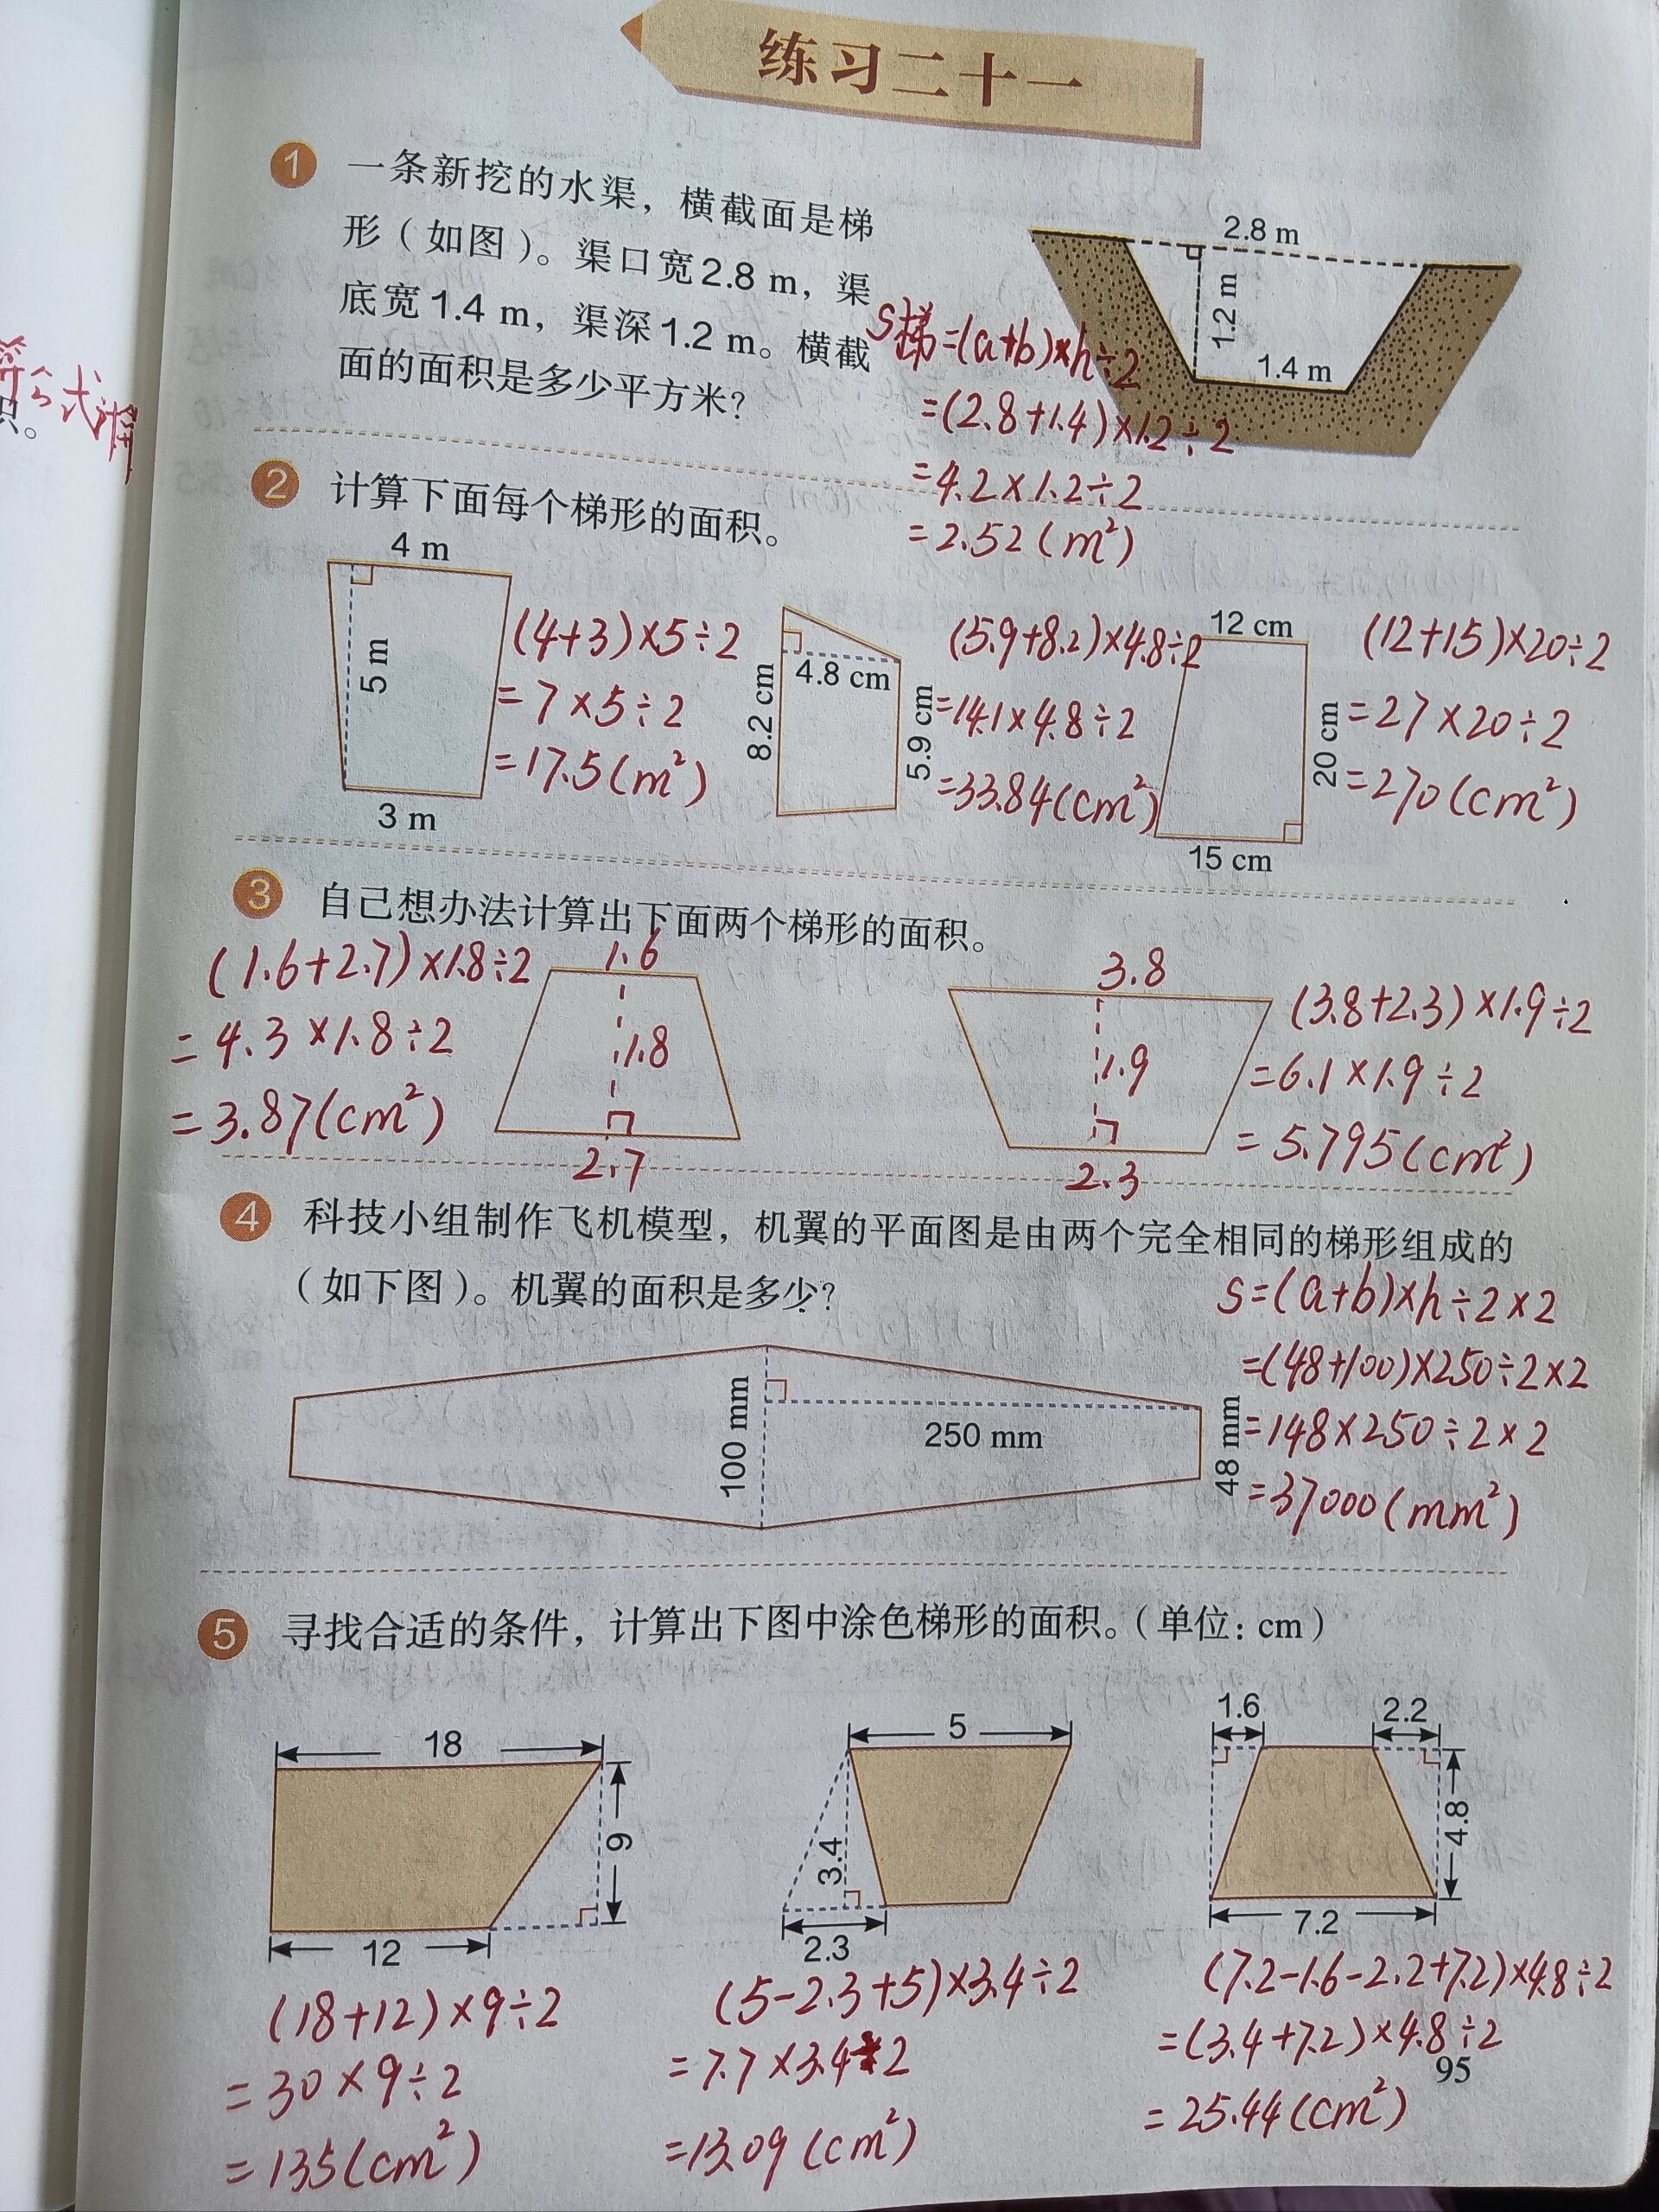 练习二十一
1 一条新挖的水渠，横截面是梯
形（如图）。渠口宽2.8 m，渠
底宽1.4 m，渠深1.2 m。横截
面的面积是多少平方米？
2.8 m
1.2 m
1.4 m
S梯=(a+b)×h÷2
=(2.8+1.4)×1.2÷2
=4.2×1.2÷2
=2.52(m²)
算公式计算
积。
2 计算下面每个梯形的面积。
4 m
5 m
3 m
(4+3)×5÷2
=7×5÷2
=17.5(m²)
8.2 cm
4.8 cm
5.9 cm
(5.9+8.2)×4.8÷2
=14.1×4.8÷2
=33.84(cm²)
12 cm
20 cm
15 cm
(12+15)×20÷2
=27×20÷2
=270(cm²)
3 自己想办法计算出下面两个梯形的面积。
(1.6+2.7)×1.8÷2
=4.3×1.8÷2
=3.87(cm²)
1.6
1.8
2.7
3.8
1.9
2.3
(3.8+2.3)×1.9÷2
=6.1×1.9÷2
=5.795(cm²)
4 科技小组制作飞机模型，机翼的平面图是由两个完全相同的梯形组成的
（如下图）。机翼的面积是多少？
100 mm
250 mm
48 mm
S=(a+b)×h÷2×2
=(48+100)×250÷2×2
=148×250÷2×2
=37000(mm²)
5 寻找合适的条件，计算出下图中涂色梯形的面积。（单位：cm）
18
9
12
(18+12)×9÷2
=30×9÷2
=135(cm²)
5
3.4
2.3
(5-2.3+5)×3.4÷2
=7.7×3.4÷2
=13.09(cm²)
1.6
2.2
4.8
7.2
(7.2-1.6-2.2+7.2)×4.8÷2
=(3.4+7.2)×4.8÷2
=25.44(cm²)
95